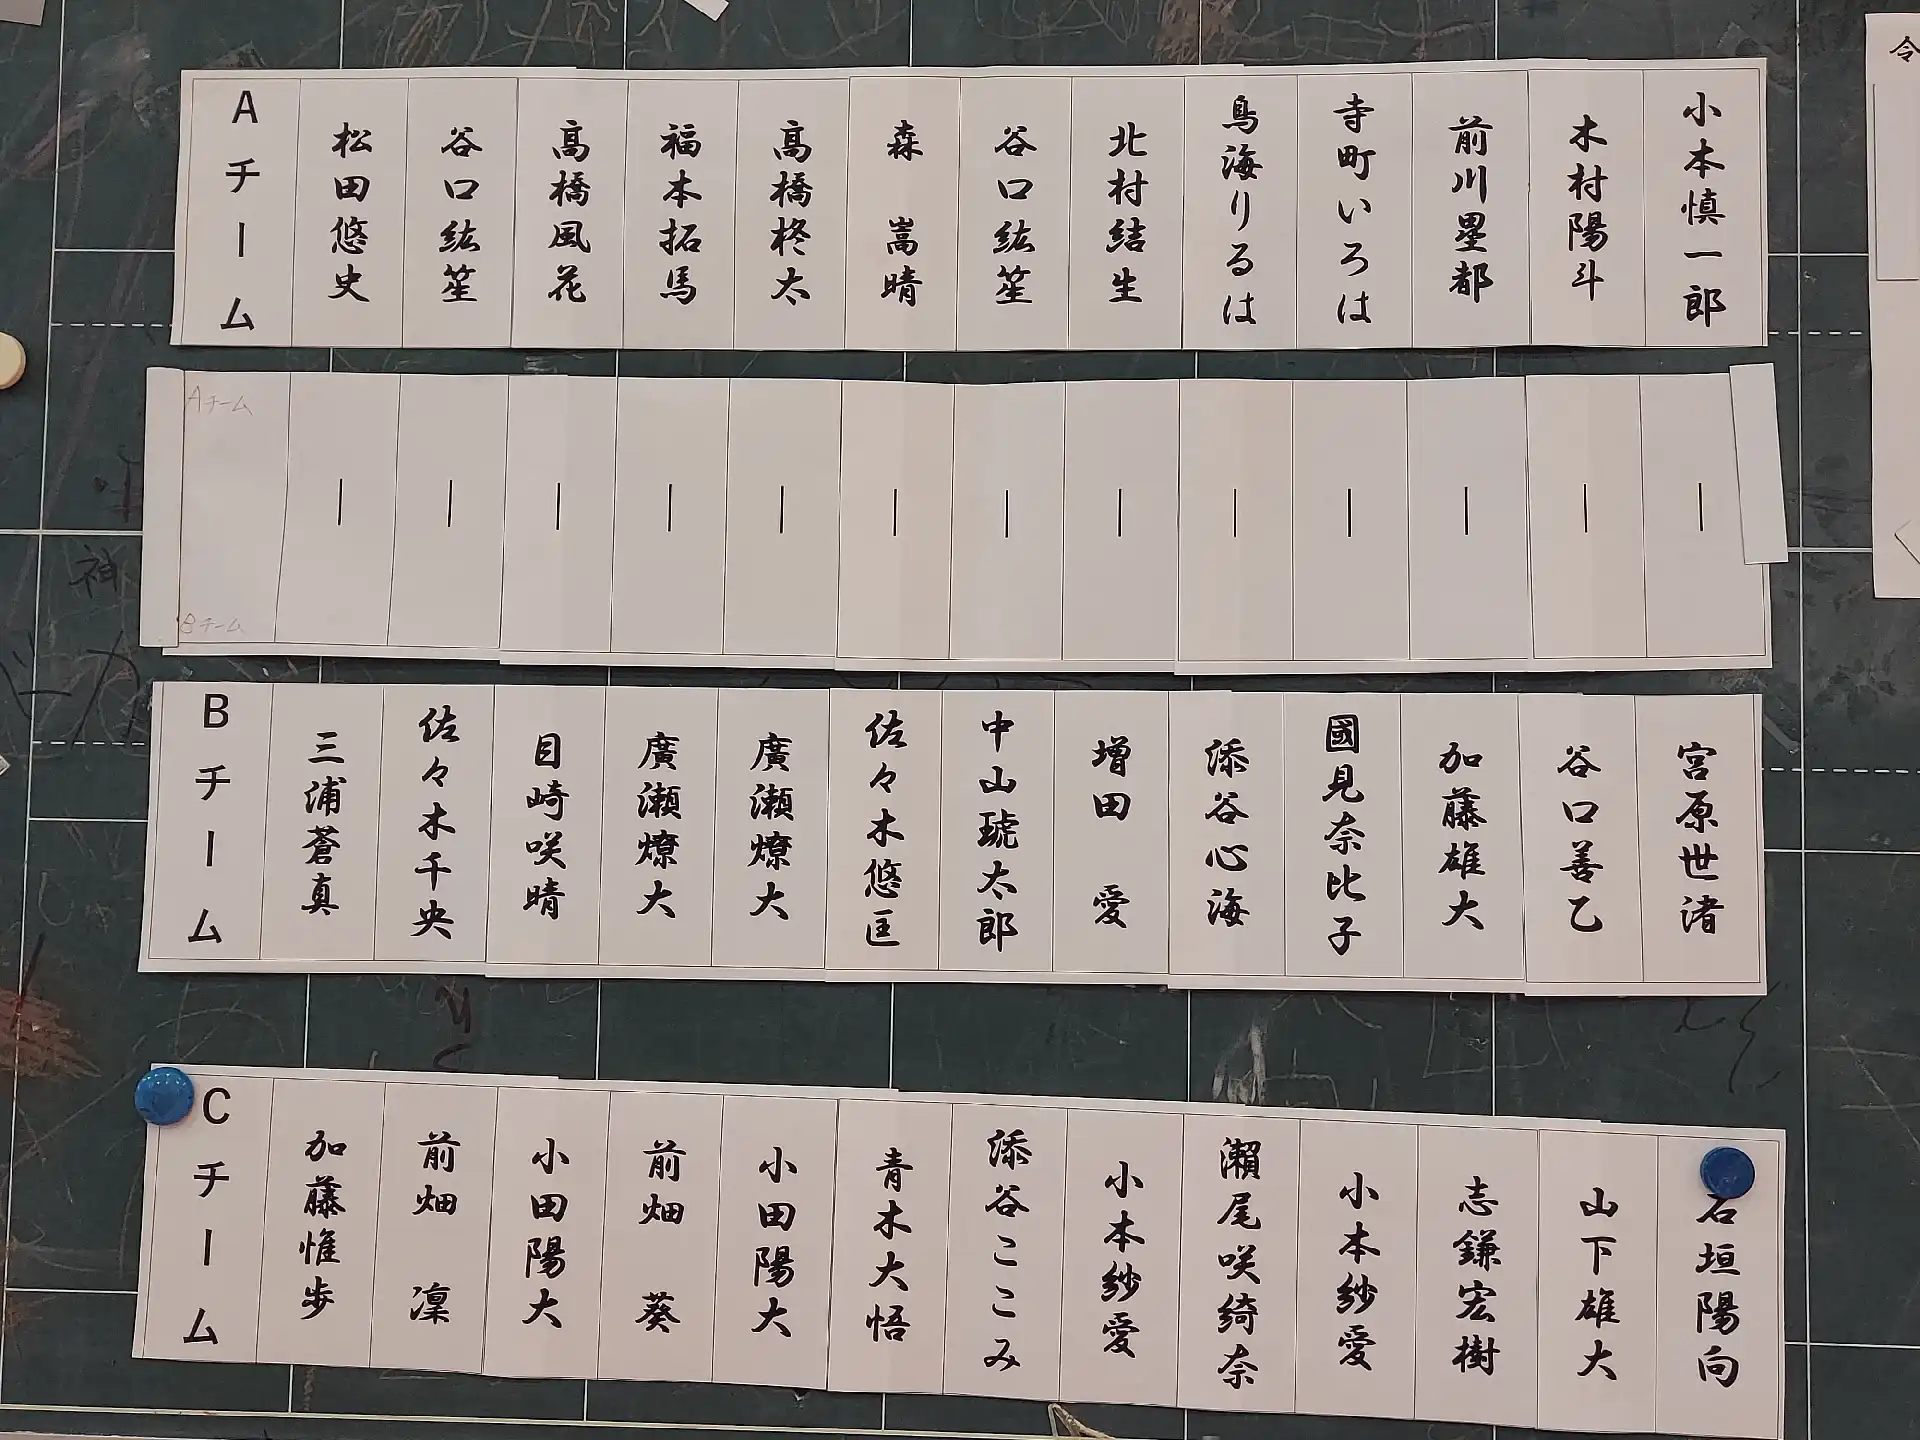 Aチーム
松田悠史
谷口紘笙
高橋風花
福本拓馬
高橋柊太
森 嵩晴
谷口紘笙
北村結生
鳥海りるは
寺町いろは
前川塁都
木村陽斗
小本慎一郎
Aチーム
Bチーム
Bチーム
三浦蒼真
佐々木千央
目崎咲晴
廣瀬燎大
廣瀬燎大
佐々木悠匡
中山琥太郎
増田 愛
添谷心海
國見奈比子
加藤雄大
谷口善乙
宮原世渚
Cチーム
加藤惟歩
前畑 凜
小田陽大
前畑 葵
小田陽大
青木大悟
添谷ここみ
小本紗愛
瀬尾咲綺奈
小本紗愛
志鎌宏樹
山下雄大
石垣陽向
令
神